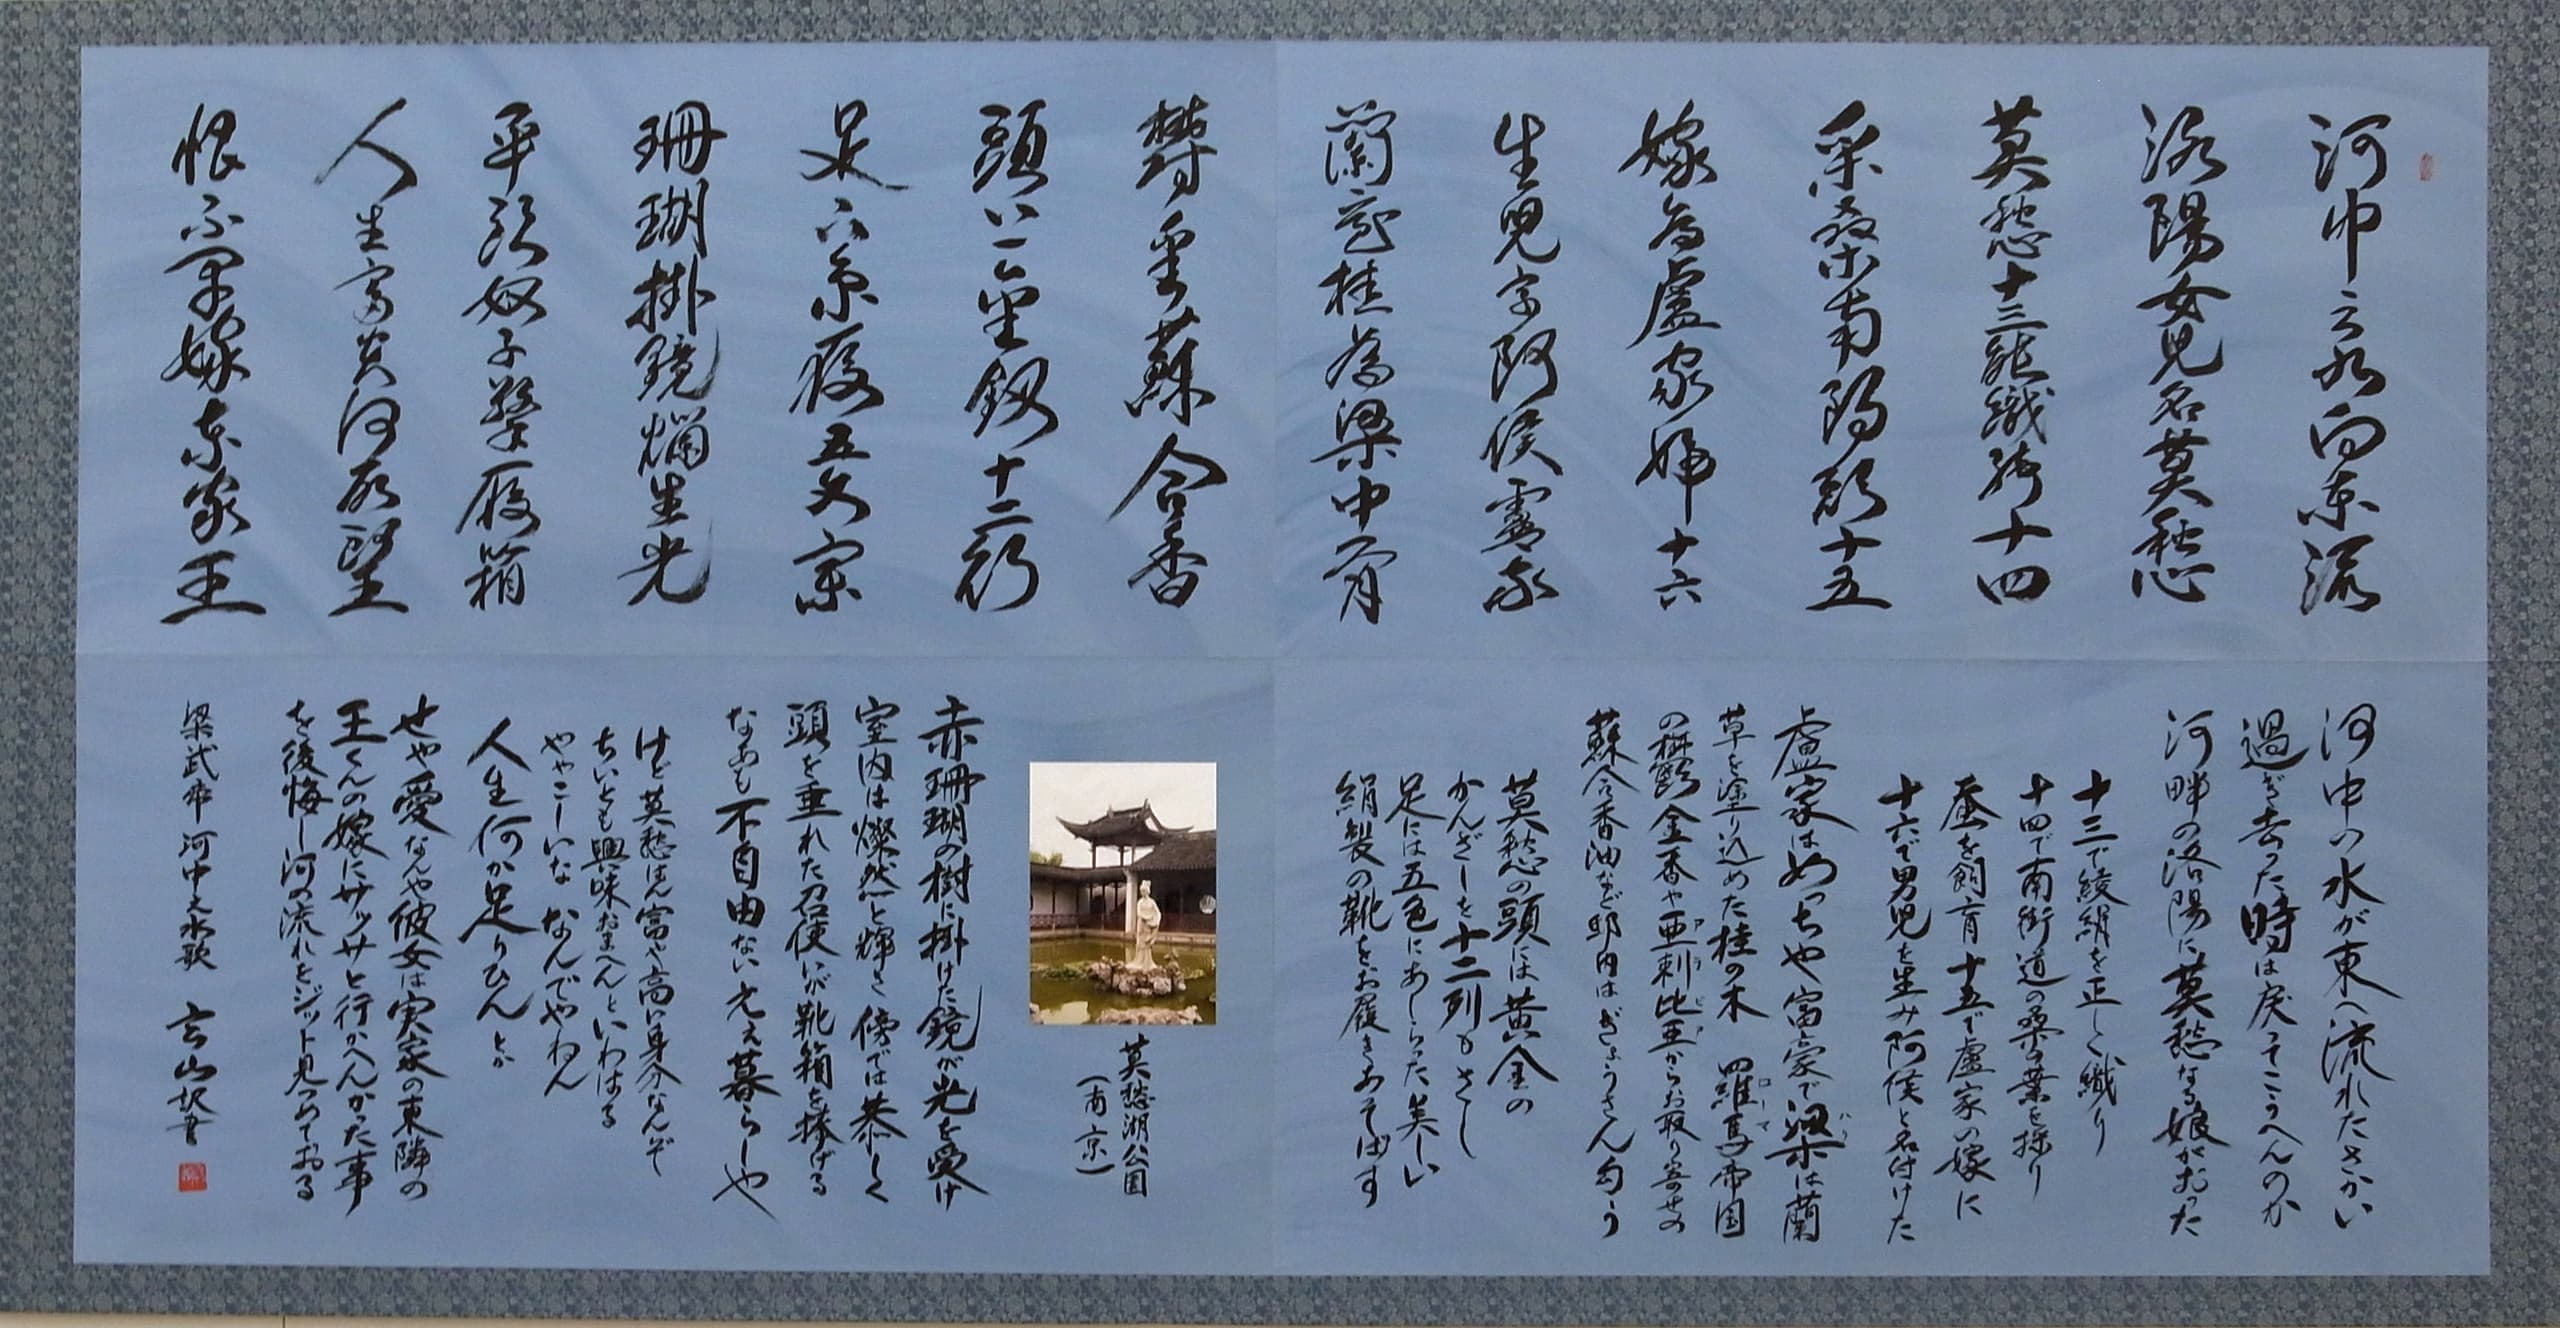 河中之水向東流
洛陽女児名莫愁
莫愁十三能織綺十四
采桑南陌頭十五
嫁為盧家婦十六
生児字阿侯盧家
蘭室桂為梁中有
鬱金蘇合香
頭上金釵十二行
足下糸履五文章
珊瑚掛鏡爛生光
平頭奴子擎履箱
人生富貴何所望
恨不早嫁東家王
河中の水が東へ流れたさかい
過ぎ去った時は戻ってこうへんのか
河畔の洛陽に莫愁なる娘がおった
十三で綾絹を正しく織り
十四で南街道の桑の葉を採り
蚕を飼育十五で盧家の嫁に
十六で男児を生み阿侯と名付けた
盧家はめっちゃ富豪で梁は蘭
草を塗り込めた桂の木 羅馬帝国
の欝金香や亜剌比亜からお取り寄せの
蘇合香油など邸内はぎょうさん匂う
莫愁の頭には黄金の
かんざしを十二列もさし
足には五色にあしらった美しい
絹製の靴をお履きあそばす
莫愁湖公園
(南京)
赤珊瑚の樹に掛けた鏡が光を受け
室内は燦然と輝き傍では恭しく
頭を垂れた召使いが靴箱を捧げる
なあも不自由ない光え暮らしや
けど莫愁はん富や高い身分なんぞ
ちいとも興味おまへんといわはる
ややこしいな なんでやねん
人生何か足りひんとか
せや愛なんや彼女は実家の東隣の
王くんの嫁にサッサと行かへんかった事
を後悔し河の流れをジット見つめておる
梁武帝 河中之水歌 玄山訳書